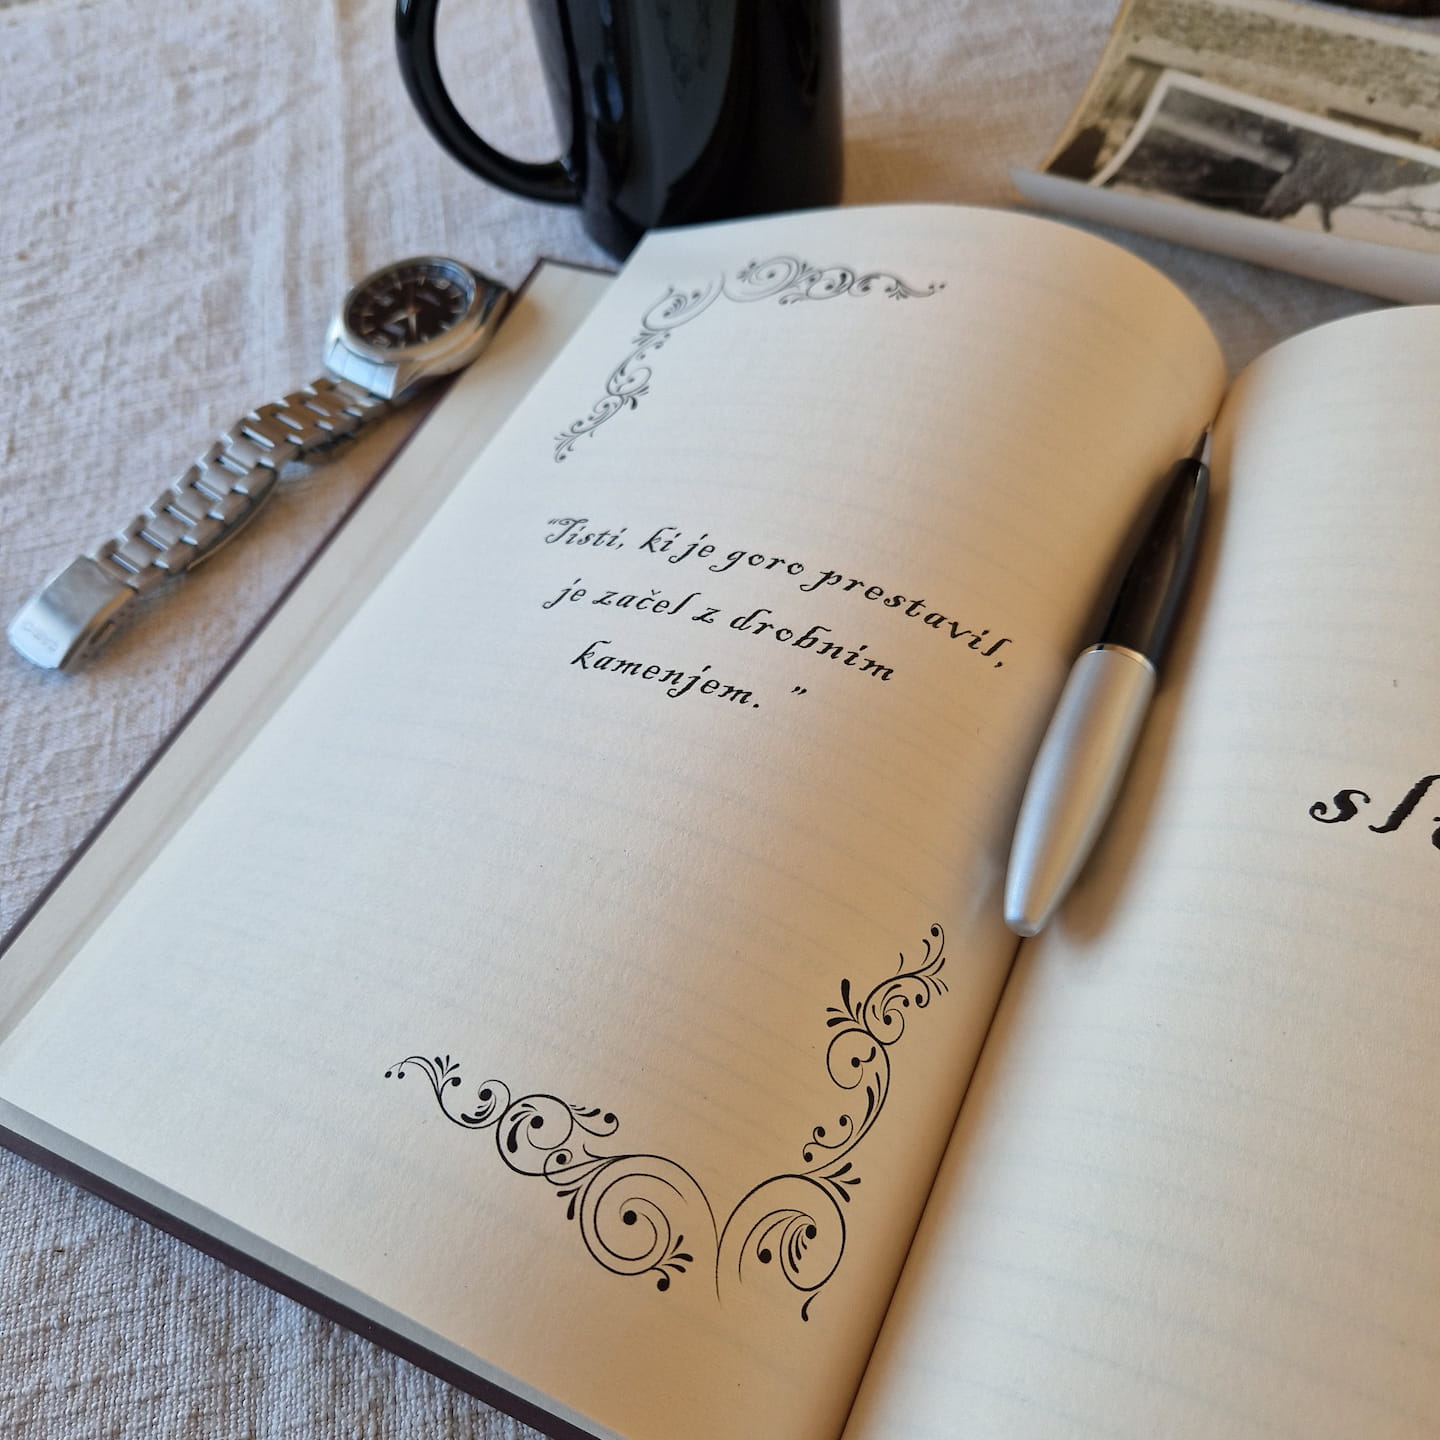 "Tisti, ki je goro prestavil,
je začel z drobnim
kamenjem. "